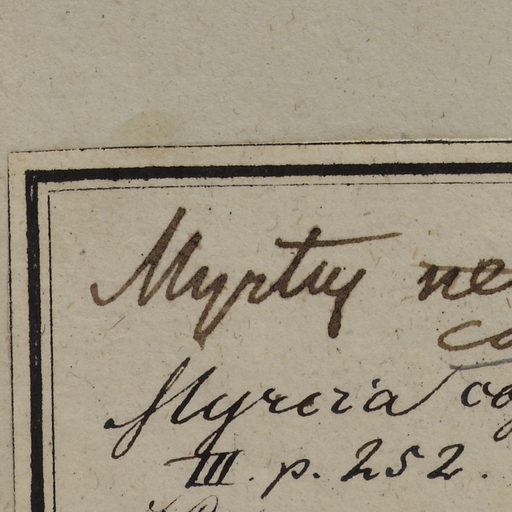 Myrtus ne
co
Myrcia co
III. p. 252.